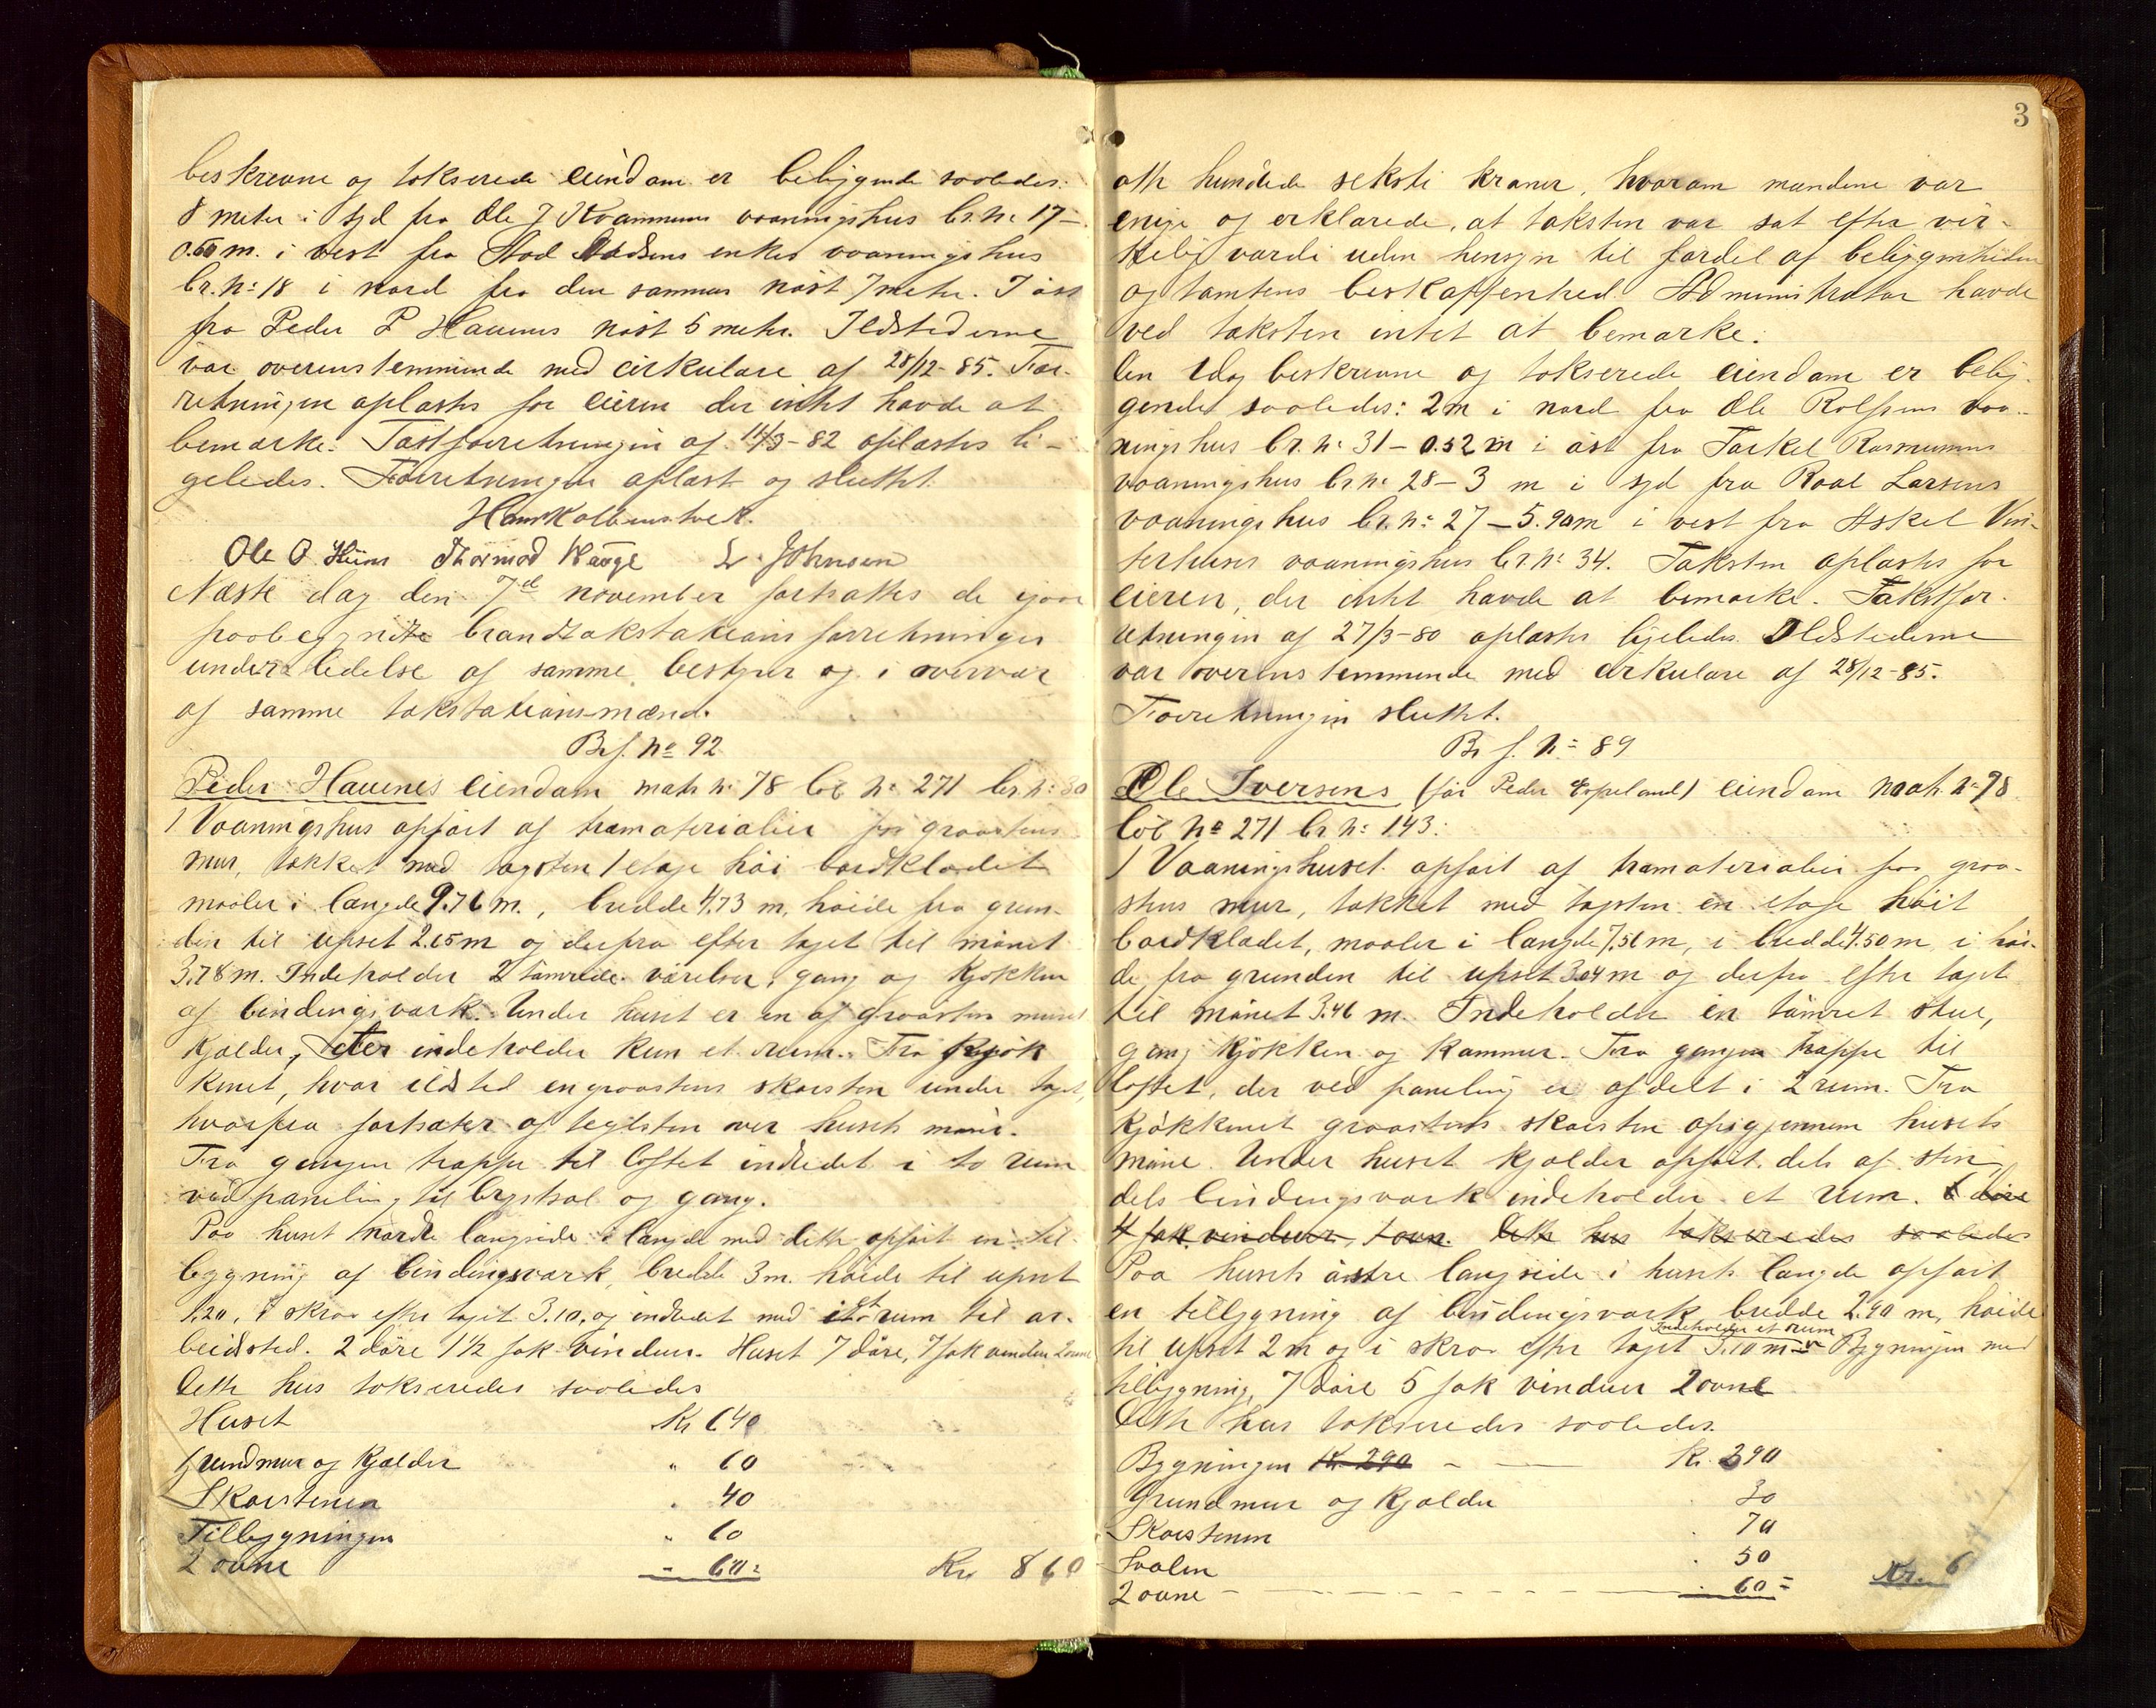 beskrevne og takserede eiendom er beliggende saaledes:
8 meter i syd fra Ole J Kvammens vaaningshus br. nr 17 –
0.60 m. i vest fra Aad Aadsens enkes vaaningshus
br. nr 18 i nord fra den sammes nöst 7 meter. I öst
fra Peder P Hauenes nöst 5 meter. Ildstederne
var overenstemmende med cirkulære af 28/12-85. For-
retningen oplæstes for eieren der intet havde at
bemærke. Takstforretningen af 14/3-82 oplæstes li-
geledes. Forretningen oplæst og sluttet.
Hans Kolbenstvedt.
Ole O. Hiim Thormod Hauge L. Johnsen
Næste dag den 7de november fortsattes de igaar
paabegyndte brandtakstations forretninger
under ledelse af samme bestyrer og i overvær
af samme takstationsmænd.
Br f. No 92
Peder Hauenes eiendom matr nr 78 löb nr 271 br. nr 30
1 Vaaningshus opfört af træmaterialier paa graastens
mur, tækket med tagsten 1 etage höi bordklædet
maaler i længde 9.76 m., bredde 4.73 m, höide fra grun-
den til upset 2.65 m og derfra efter taget til mönet
3.78 m. Indeholder 2 tömrede værelser, gang og kjökken
af bindingsværk. Under huset er en af graasten muret
kjælder, der indeholder kun et rum. Fra kjök
kenet, hvor ildsted en graastens skorsten under taget,
hvorfra fortsætter af teglsten over husets möne.
Fra gangen trappe til loftet indredet i to rum
ved paneling til brystval og gang.
Paa huset nordre langside i længde med dette opfört en til-
bygning af bindingsværk, bredde 3 m. höide til upset
1.20, i skraa efter taget 3.10, og indredet med et rum til ar-
beidssted. 2 döre 1½ fak vinduer. Huset 7 döre, 7 fak vinduer 2 ovne
Dette hus takseredes saaledes
Huset Kr 640
Grundmur og Kjælder " 60
Skorstenen " 40
Tilbygningen " 60
2 ovne - 60 = Kr 860
3
otte hundrede seksti kroner, hvorom mændene var
enige og erklærede, at taksten var sat efter vir-
kelig værdi uden hensyn til fordel af beliggenheden
og tomtens beskaffenhed. Administrator havde
ved taksten intet at bemærke.
Den idag beskrevne og takserede eiendom er belig-
gende saaledes: 2 m i nord fra Ole Rolfsens vaa-
ningshus br. nr 31 – 0.52 m i öst fra Torkel Rasmussens
vaaningshus br nr 28 – 3 m i syd fra Roal Larsens
vaaningshus br. nr 27 – 5.90 m i vest fra Askel Vin-
terhuses vaaningshus br. nr 34. Taksten oplæstes for
eieren, der intet havde at bemærke. Takstfor-
retningen af 27/3-80 oplæstes ligeledes. Ildstederne
var overenstemmende med cirkulære af 28/12-85.
Forretningen sluttet.
Br f. nr 89
Ole Iversens (för Peder Espeland) eiendom matr. nr 78
löb No 271 br nr 143:
1 Vaaningshuset opfört af træmaterialier paa graa-
stens mur, tækket med tagsten en etage höit
bordklædet, maaler i længde 7.56 m, i bredde 4.50 m i höi-
de fra grunden til upset 3.04 m og derfra efter taget
til mönet 3.46 m. Indeholder en tömret stue,
gang kjökken og kammer. Fra gangen trappe til
loftet, der ved paneling er afdelt i 2 rum. Fra
kjökkenet graastens skorsten opigjennem husets
möne. Under huset kjælder opfört dels af sten
dels bindingsværk indeholder et rum. 6 döre
4 fak vinduer, 1 ovn. Dette hus takseredes saaledes
Paa husets östre langside i husets længde opfört
en tilbygning af bindingsværk bredde 2.90 m, höide
til upset 2 m og i skraa efter taget 3.10 m Indeholder et rum Bygningen med
tilbygning, 7 döre 5 fak vinduer 2 ovne
Dette hus takseredes saaledes.
Bygningen Kr. 290 – Kr. 390
Grundmur og Kjælder 30
Skorstenen " 70
Svalen " 50
2 ovne – " 60 = Kr. 6